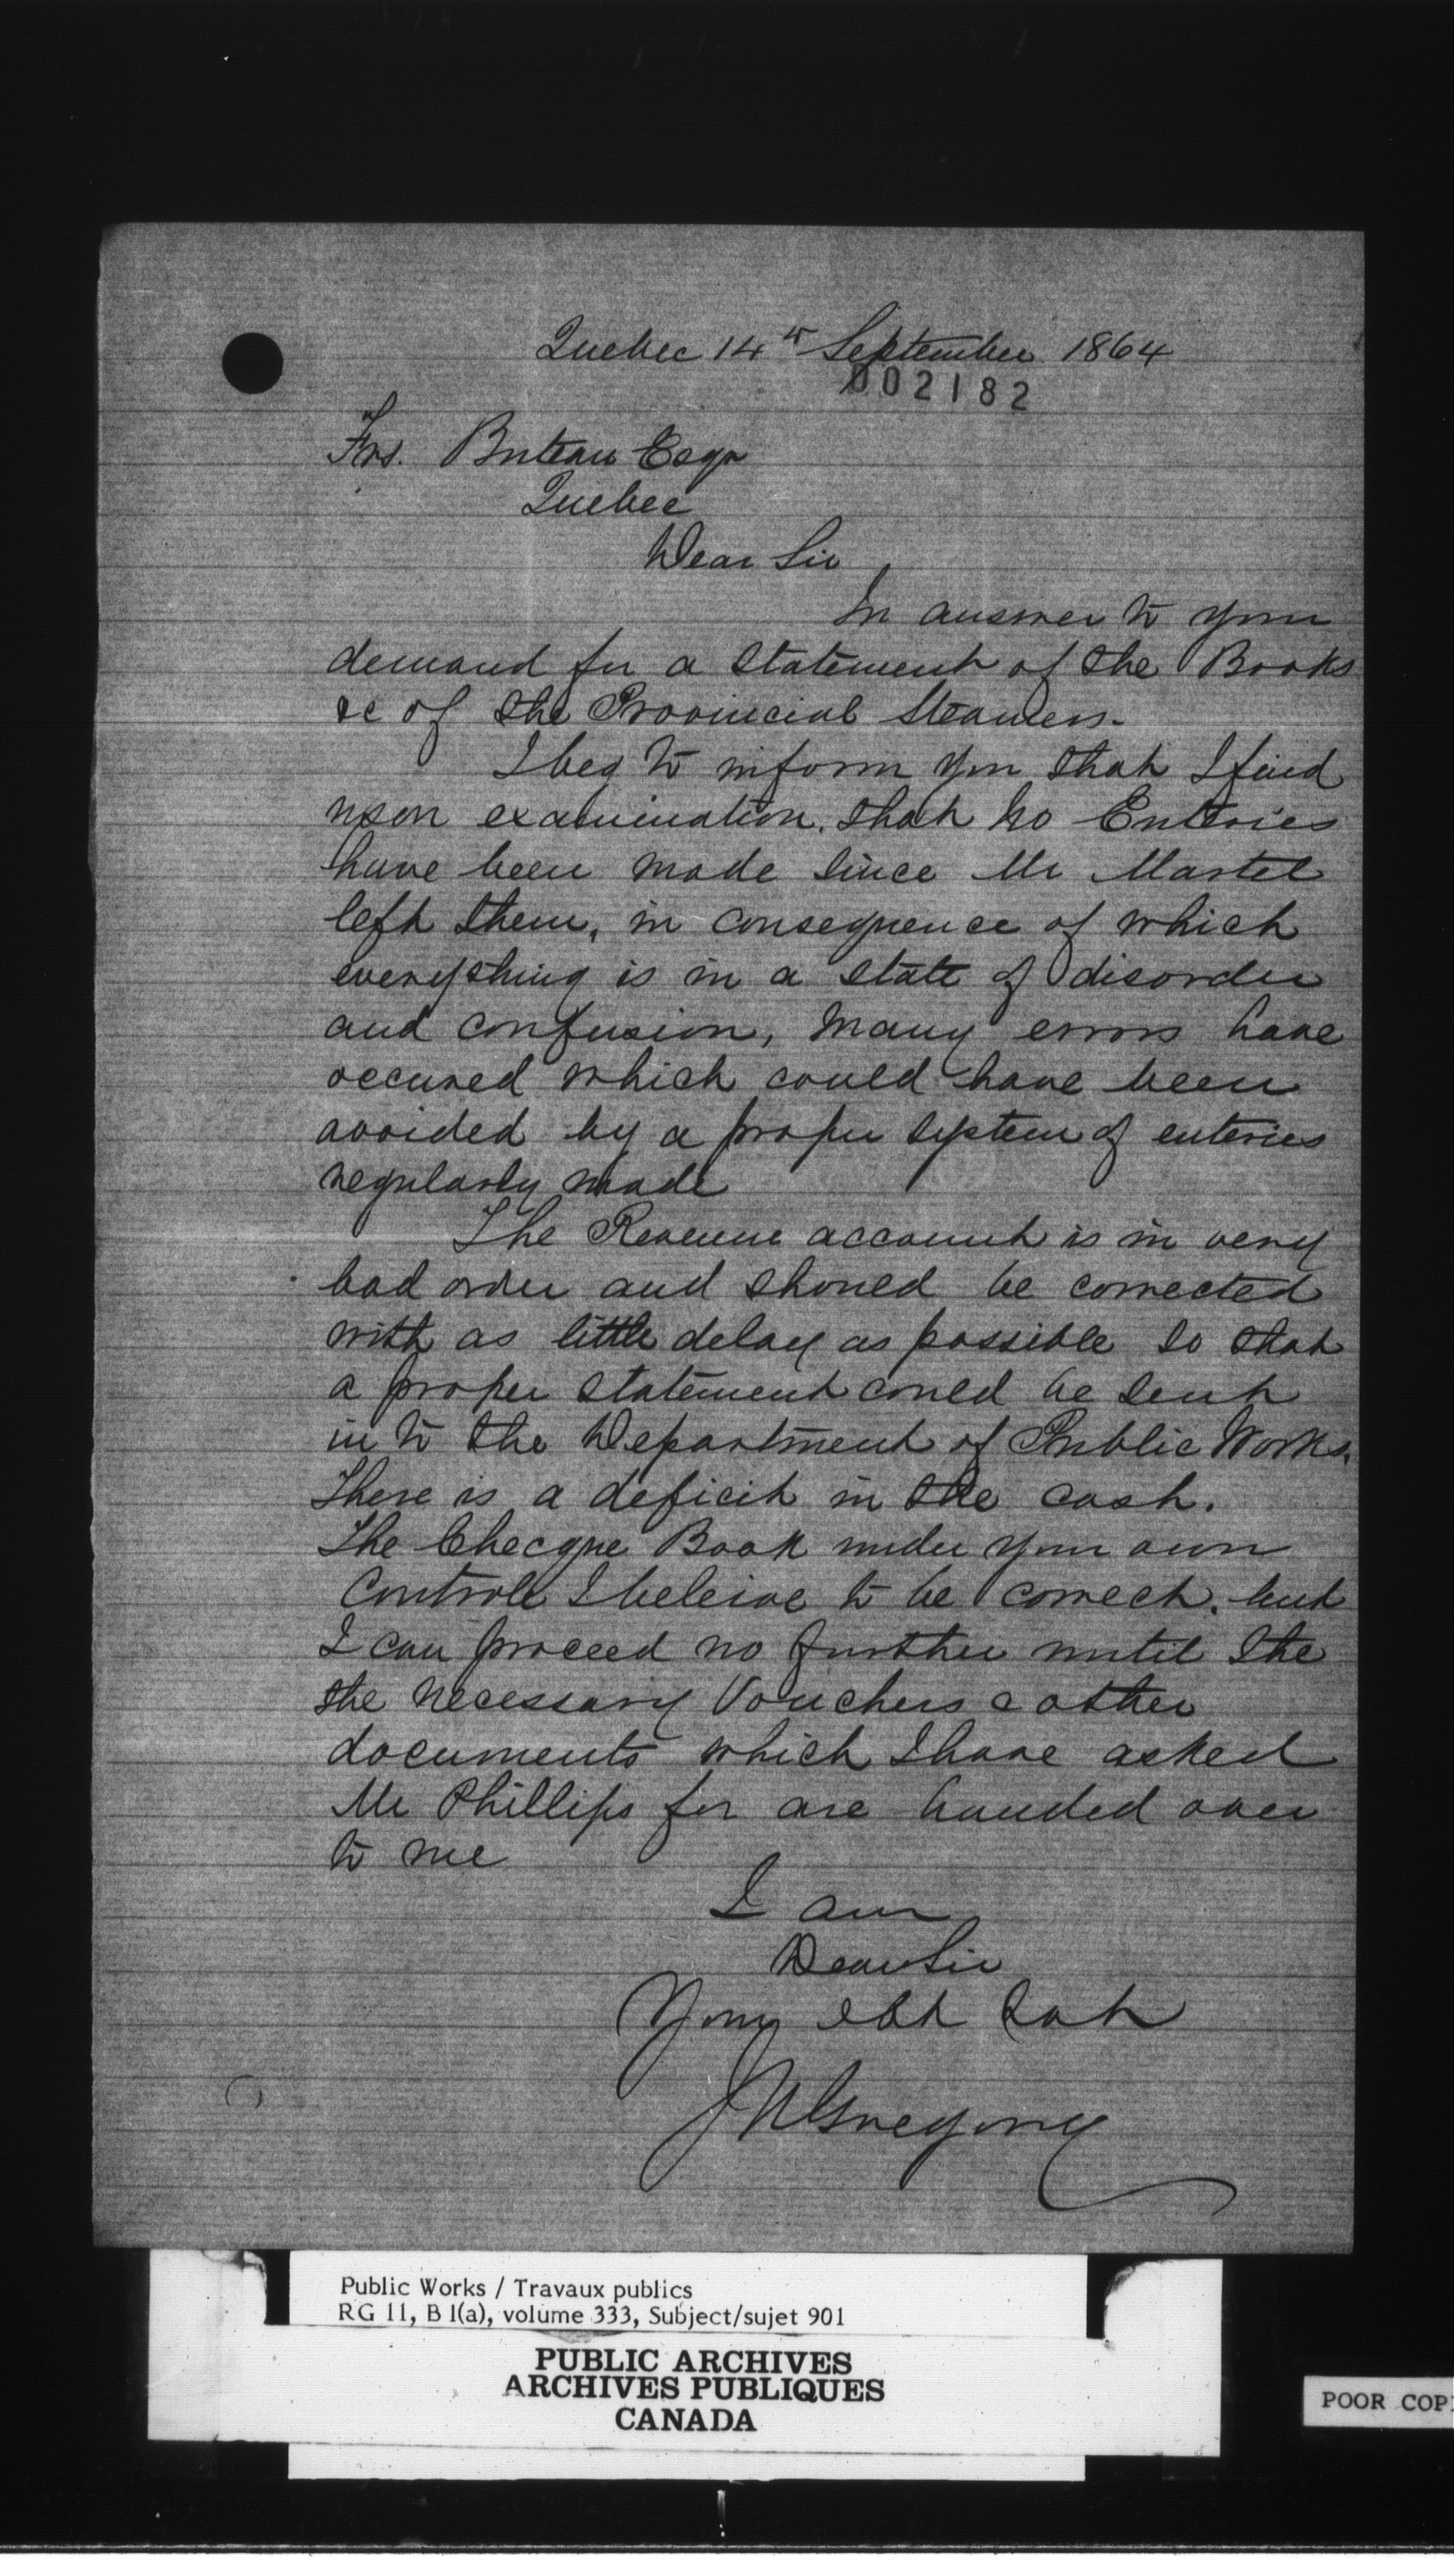 Quebec 14th September 1864
002182
Frs. Buteau Esqr
Quebec
Dear Sir
In answer to your
demand for a statement of the Books
&c of the Provincial Steamers.
I beg to inform you that I find
upon examination. that no Enteries
have been made since Mr Martel
left them, in consequence of which
everything is in a state of disorder
and confusion, many errors have
occured which could have been
avoided by a proper system of enteries
regularly made
The Revenue account is in very
bad order and should be corrected
with as little delay as possible so that
a proper statement could be sent
in to the Department of Public Works.
There is a deficit in the cash.
The Checque Book under your own
Controle I beleive to be correct. but
I can proceed no further until the
the necessary Vouchers & other
documents which I have asked
Mr Phillips for are handed over
to me
I am
Dear Sir
Your obt Svt
J U Gregory
Public Works / Travaux publics
RG 11, B 1(a), volume 333, Subject/sujet 901
PUBLIC ARCHIVES
ARCHIVES PUBLIQUES
CANADA
POOR COP